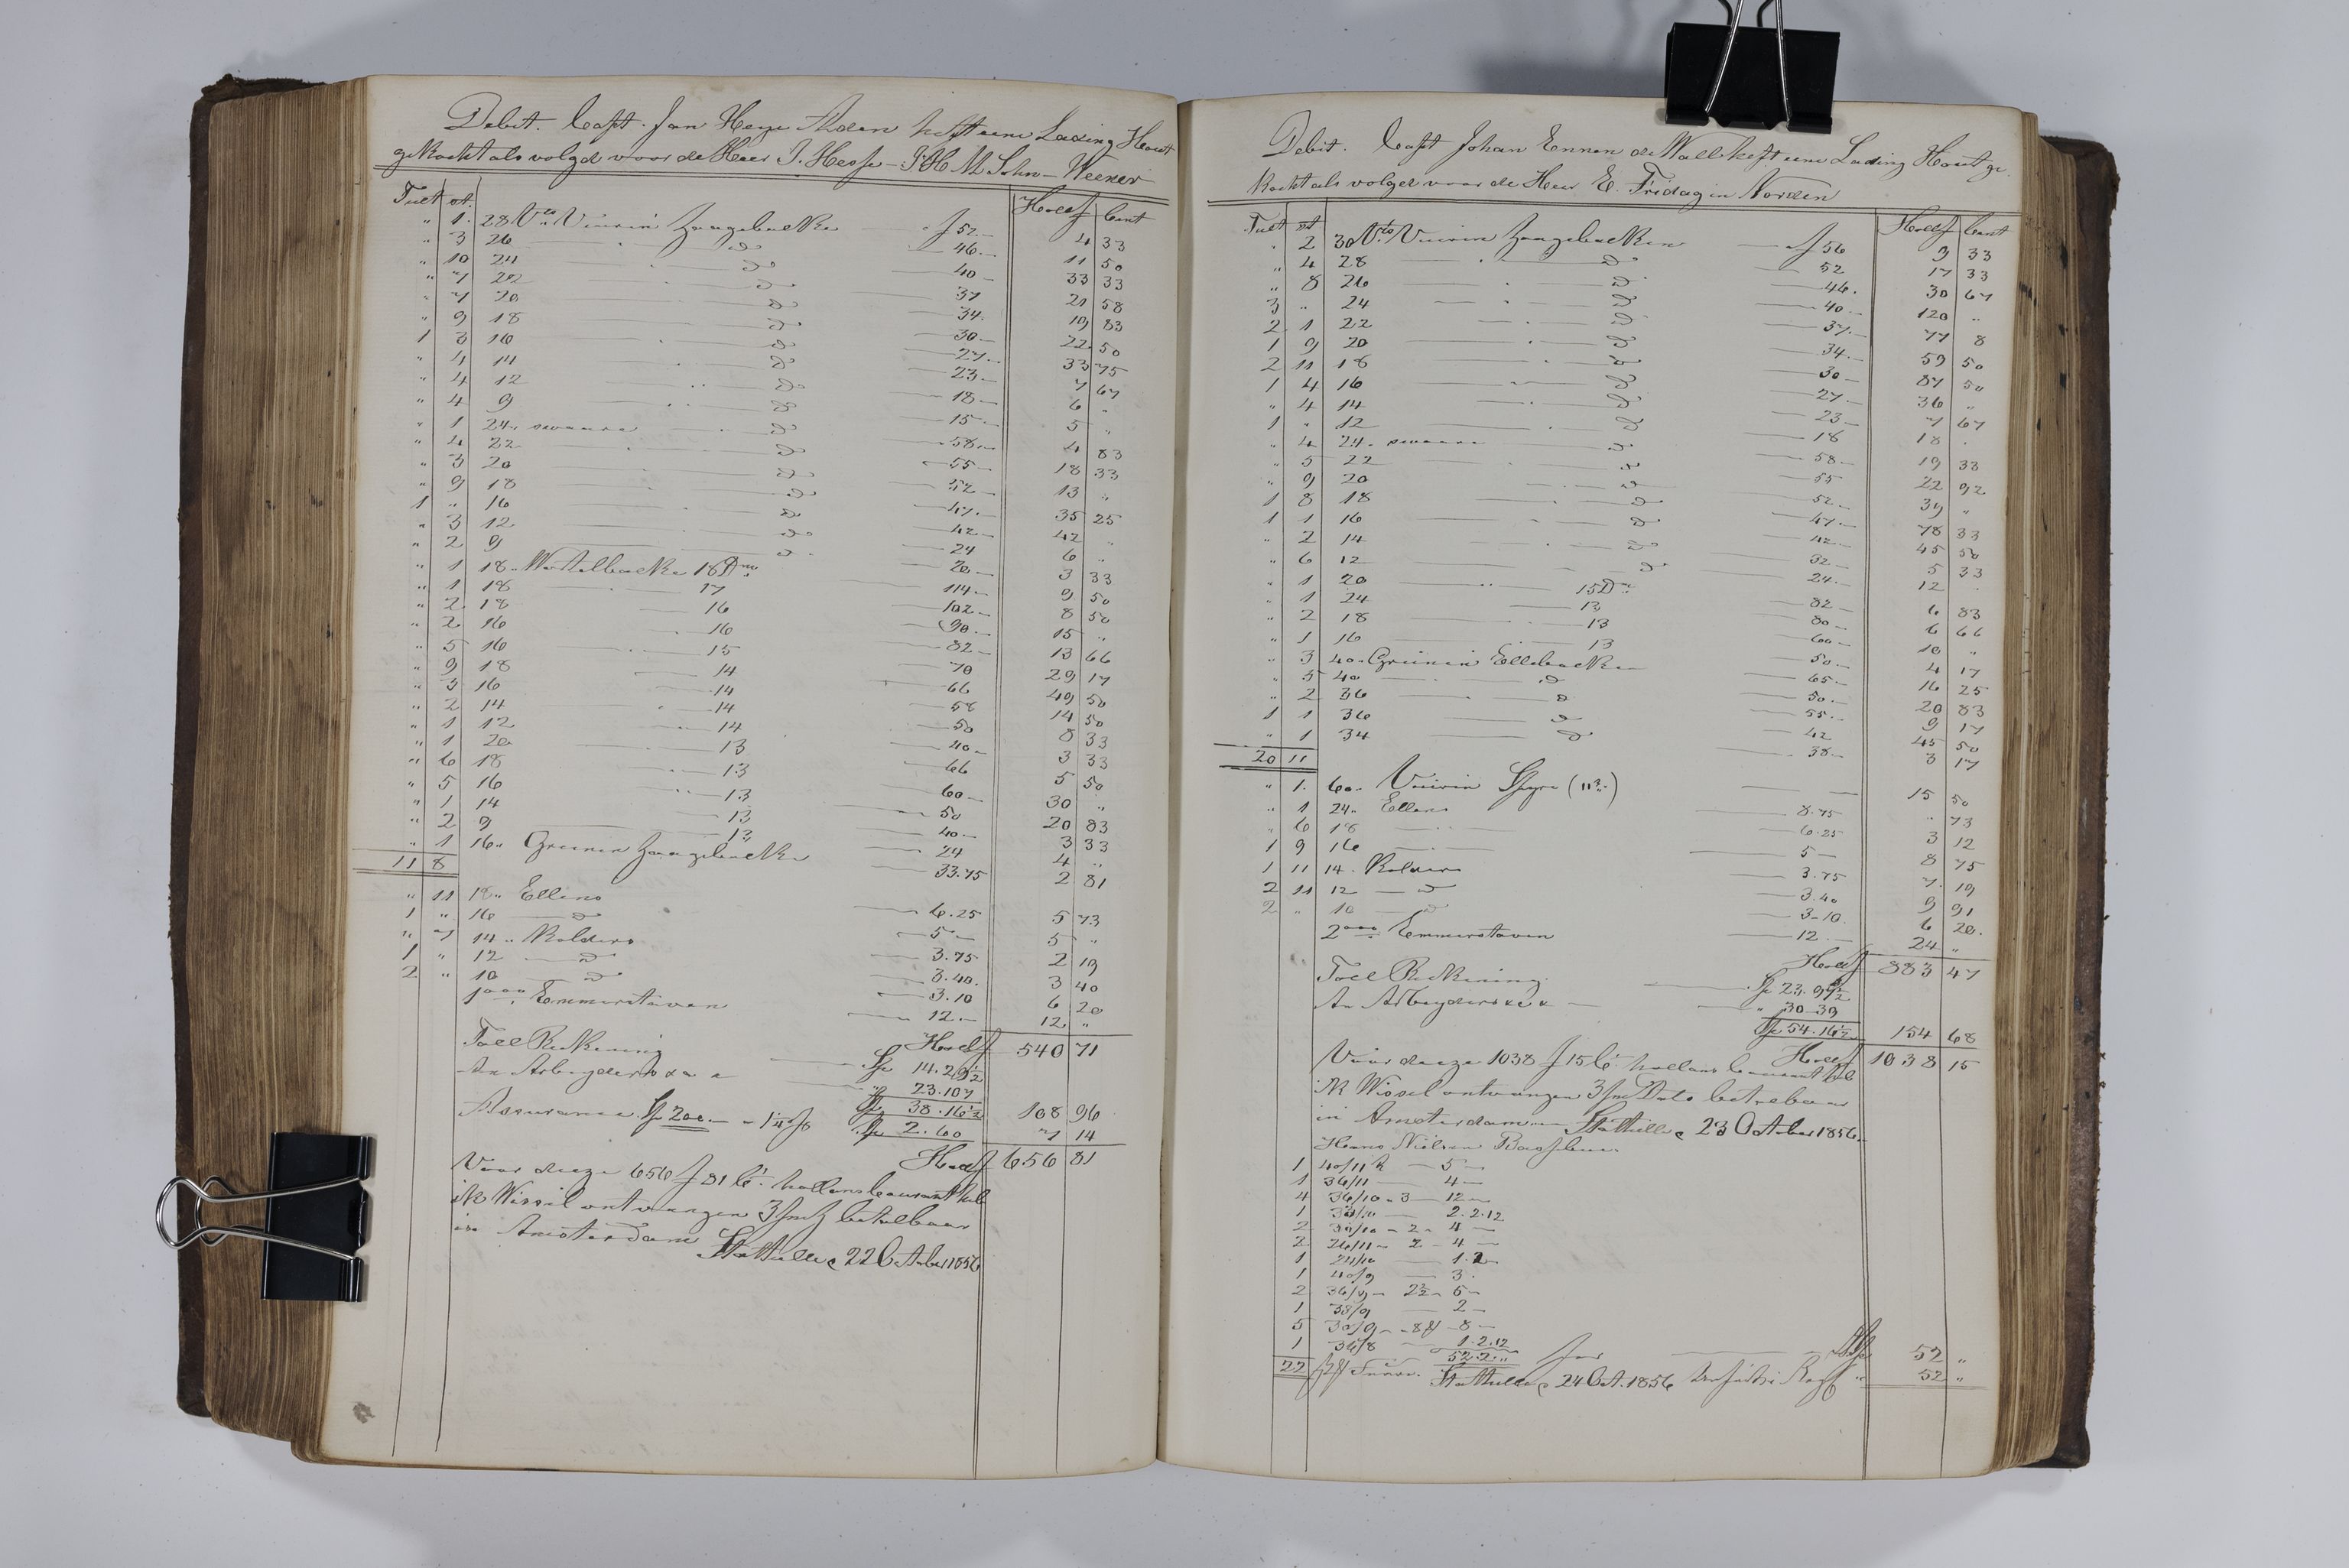 Debit. Capt. Jan Heye Ahden heft eene Lading Hout
gekocht als volgd voor de Heer J. Hesse - P. H. M. Sohn - Weener
Tult st. Holl f Cent
" 1. 28 Vto Vuirin Zaagebaelke f 52.- 4 33
" 3 26 do 46.- 11 50
" 10 24 do 40- 33 33
" 7 22 do 37 21 58
" 7 20 do 34. 19 83
" 9 18 do 30.- 22 50
1 3 16 do 27.- 33 75
" 4 14 do 23.- 7 67
" 4 12 do 18.- 6 "
" 4 9 do 15.- 5 "
" 1 24 swaare do 58.- 4 83
" 4 22 do 55- 18 33
" 3 20 do 52- 13 "
" 9 18 do 47.- 35 25
1 " 16 do 42- 42 "
" 3 12 do 24 6 "
" 2 9 do 20.- 3 33
" 1 18 Wortelbaelke 18 Dm 114- 9 50
" 1 18 17 102- 8 50
" 2 18 16 90.- 15 "
" 2 16 16 82- 13 66
" 5 16 15 70 29 17
" 9 18 14 66 49 50
" 3 16 14 58 14 50
" 2 14 14 50 8 33
" 1 12 14 40- 3 33
" 1 20 13 66 5 50
" 6 18 13 60- 30 "
" 5 16 13 50 20 83
" 1 14 13 40- 3 33
" 2 9 13 24 4 "
" 1 16 " Greinen Zaagebaelke 33.75 2 81
11 8
" 11 18 " Ellens 6.25 5 73
1 " 16 do 5- 5 "
" 7 14 " Kolders 3.75 2 19
1 " 12 do 3.40. 3 40
2 " 10 do 3.10 6 20
1000 Emmerstaven 12.- 12 "
Holl f 540 71
Toll Rekening Sp 14.29½
An Arbeyders & a " 23.107
Sp 38.16½ 108 96
Assurance Sp 200.- - 1¼ % Sp 2.60 7 14
Holl f 656 81
Voor deeze 656 f 81 Ct. hollans Courant heb
ik Wissel ontvangen 3/md betalbaar
in Amsterdam
Stathelle 22 October 1856
Debit. Capt Johan Ennen de Wall heft eene Lading Hout ge
kocht als volget voor de Heer E. Fridag in Norden
Tult st Holl f Cent
" 2 30 Vto Vuiren Zaagebaelken f 56 9 33
" 4 28 do 52 17 33
" 8 26 do 46. 30 67
3 " 24 do 40- 120 "
2 1 22 do 37.- 77 8
1 9 20 do 34.- 59 50
2 11 18 do 30- 87 50
1 4 16 do 27- 36 "
" 4 14 do 23- 7 67
1 " 12 do 18 18 "
" 4 24. swaare do 58- 19 33
" 5 22 do 55 22 92
" 9 20 do 52.- 39 "
1 8 18 do 47.- 78 33
1 1 16 do 42.- 45 50
" 2 14 do 32.- 5 33
" 6 12 do 24.- 12 "
" 1 20 15 Dm 82- 6 83
" 1 24 13 80- 6 66
" 2 18 13 60- 10 "
" 1 16 13 50.- 4 17
" 3 40 " Greinen Ellebaelke 65.- 16 25
" 5 40 do 50.- 20 83
" 2 36 do 55.- 9 17
1 1 36 do 42 45 50
" 1 34 do 38- 3 17
20 11
" 1. 60. Vuirin Spyre (11 3 ") 15 50
" 1 24 " Ellens 8.75 " 73
" 6 18 6.25 3 12
1 9 16 5- 8 75
1 11 14. Kolders 3.75 7 19
2 11 12 do 3.40 9 91
2 " 10 do 3-10. 6 20.
2000 Emmerstaven 12.- 24 "
Holl f 883 47
Toll Rekening Sp 23.97½
An Arbeyders & a " 30-39
Sp 54.16½ 154 68
Holl f 1038 15
Voor deeze 1038 f 15 Ct. hollans Courant heb
ik Wissel ontvangen 3/m Dato betalbaar
in Amsterdam Stathelle 23 October 1856
Hans Nielsen
1 40/11 R - 5-
1 36/11 - 4-
4 36/10 - 3 - 12-
1 38/10 - 2.2.12
2 30/10 - 2 - 4 -
2 26/11 - 2 - 4 -
1 24/10 - 1.2
1 40/9 - 3.
2 36/9 - 2½ - 5-
1 38/9 - 2-
5 30/9 - 8 -
1 36/8 1.2.12
52.2 " Sp 52 "
22 Stathelle 24 Oct. 1856 52 "